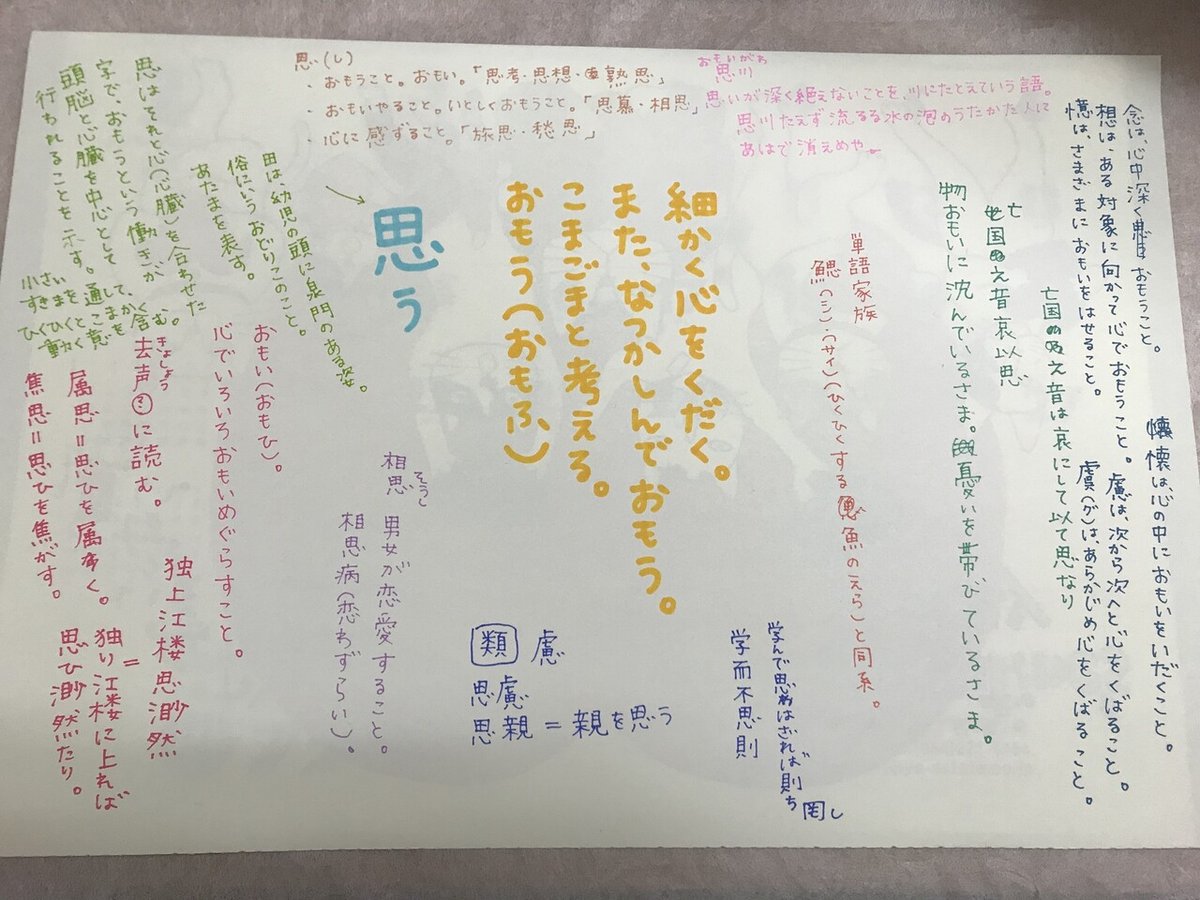 思(し)
・おもうこと。おもい。「思考・思想・熟思」
・おもいやること。いとしくおもうこと。「思慕・相思」
・心に感ずること。「旅思・愁思」
おもいがわ
思川
思いが深く絶えないことを、川にたとえていう語。
思川たえず流るる水の泡のうたかた人に
あはで消えめや。
念は、心中深くおもうこと。
想は、ある対象に向かって心でおもうこと。慮は、次から次へと心をくばること。
憶は、さまざまにおもいをはせること。虞(グ)は、あらかじめ心をくばること。
懐は、心の中におもいをいだくこと。
亡
国之音哀以思
亡国の音は哀にして以て思なり
物おもいに沈んでいるさま。憂いを帯びているさま。
単語家族
鰓(シン)・(サイ)(ひくひくする魚のえら)と同系。
細かく心をくだく。
また、なつかしんでおもう。
こまごまと考える。
おもう(おもふ)
思う
田は、幼児の頭に泉門のある姿。
俗にいうおどりこのこと。
あたまを表す。
思はそれと心(心臓)を合わせた
字で、おもうという働きが
頭脳と心臓を中心として
行われることを示す。
小さいすきまを通して、
ひくひくと動く意を含む。
おもい(おもひ)。
心でいろいろおもいめぐらすこと。
きょしょう
去声に読む。
属思=思ひを属く。
焦思=思ひを焦がす。
独上江楼思渺然
=
独り江楼に上れば
思ひ渺然たり。
そうし
相思
男女が恋愛すること。
相思病(恋わずらい)。
類 慮
思慮
思親=親を思う
学んで思わざれば則ち罔し
学而不思則